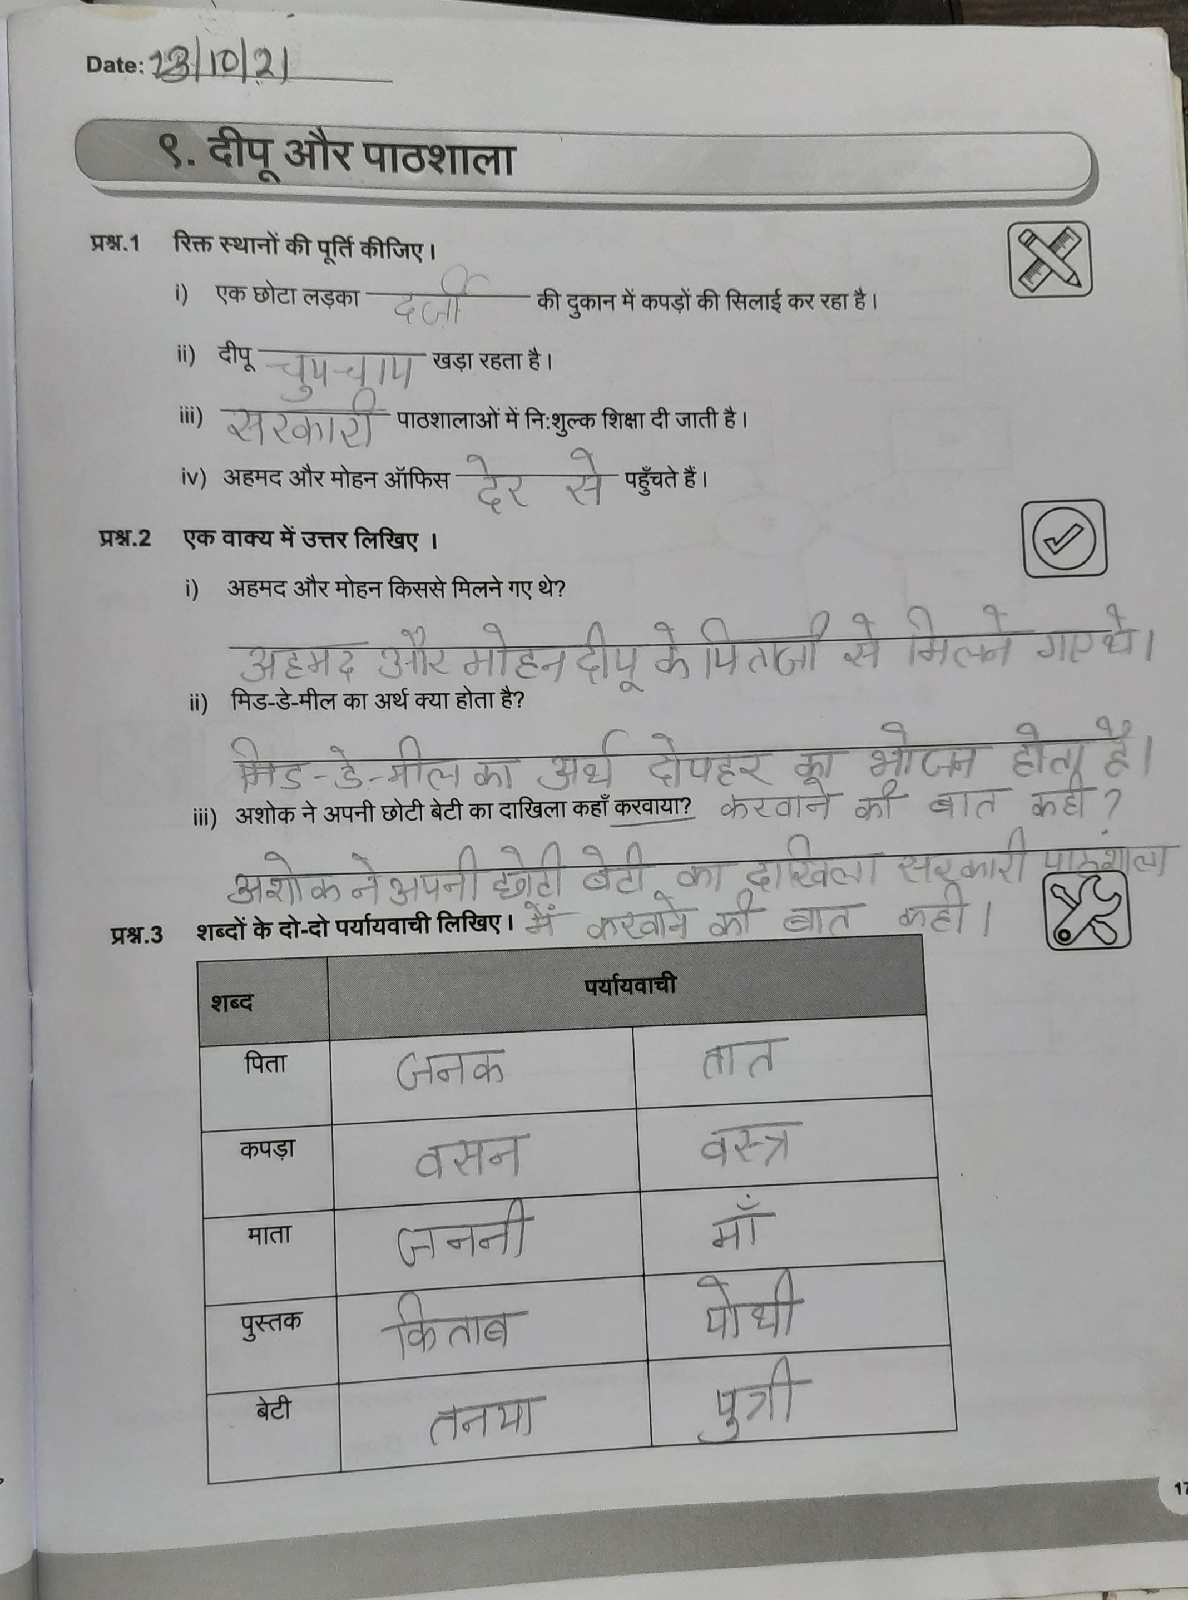 Date: 23/10/21
९. दीपू और पाठशाला
प्रश्न.1 रिक्त स्थानों की पूर्ति कीजिए।
i) एक छोटा लड़का दर्जी की दुकान में कपड़ों की सिलाई कर रहा है।
ii) दीपू चुप-चाप खड़ा रहता है।
iii) सरकारी पाठशालाओं में नि:शुल्क शिक्षा दी जाती है।
iv) अहमद और मोहन ऑफिस देर से पहुँचते हैं।
प्रश्न.2 एक वाक्य में उत्तर लिखिए ।
i) अहमद और मोहन किससे मिलने गए थे?
अहमद और मोहन दीपू के पिताजी से मिलने गए थे।
ii) मिड-डे-मील का अर्थ क्या होता है?
मिड-डे-मील का अर्थ दोपहर का भोजन होता है।
iii) अशोक ने अपनी छोटी बेटी का दाखिला कहाँ करवाया? करवाने की बात कही ?
अशोक ने अपनी छोटी बेटी का दाखिला सरकारी पाठशाला
में करवाने की बात कही।
प्रश्न.3 शब्दों के दो-दो पर्यायवाची लिखिए।
शब्द पर्यायवाची
पिता जनक तात
कपड़ा वसन वस्त्र
माता जननी माँ
पुस्तक किताब पोथी
बेटी तनया पुत्री
17